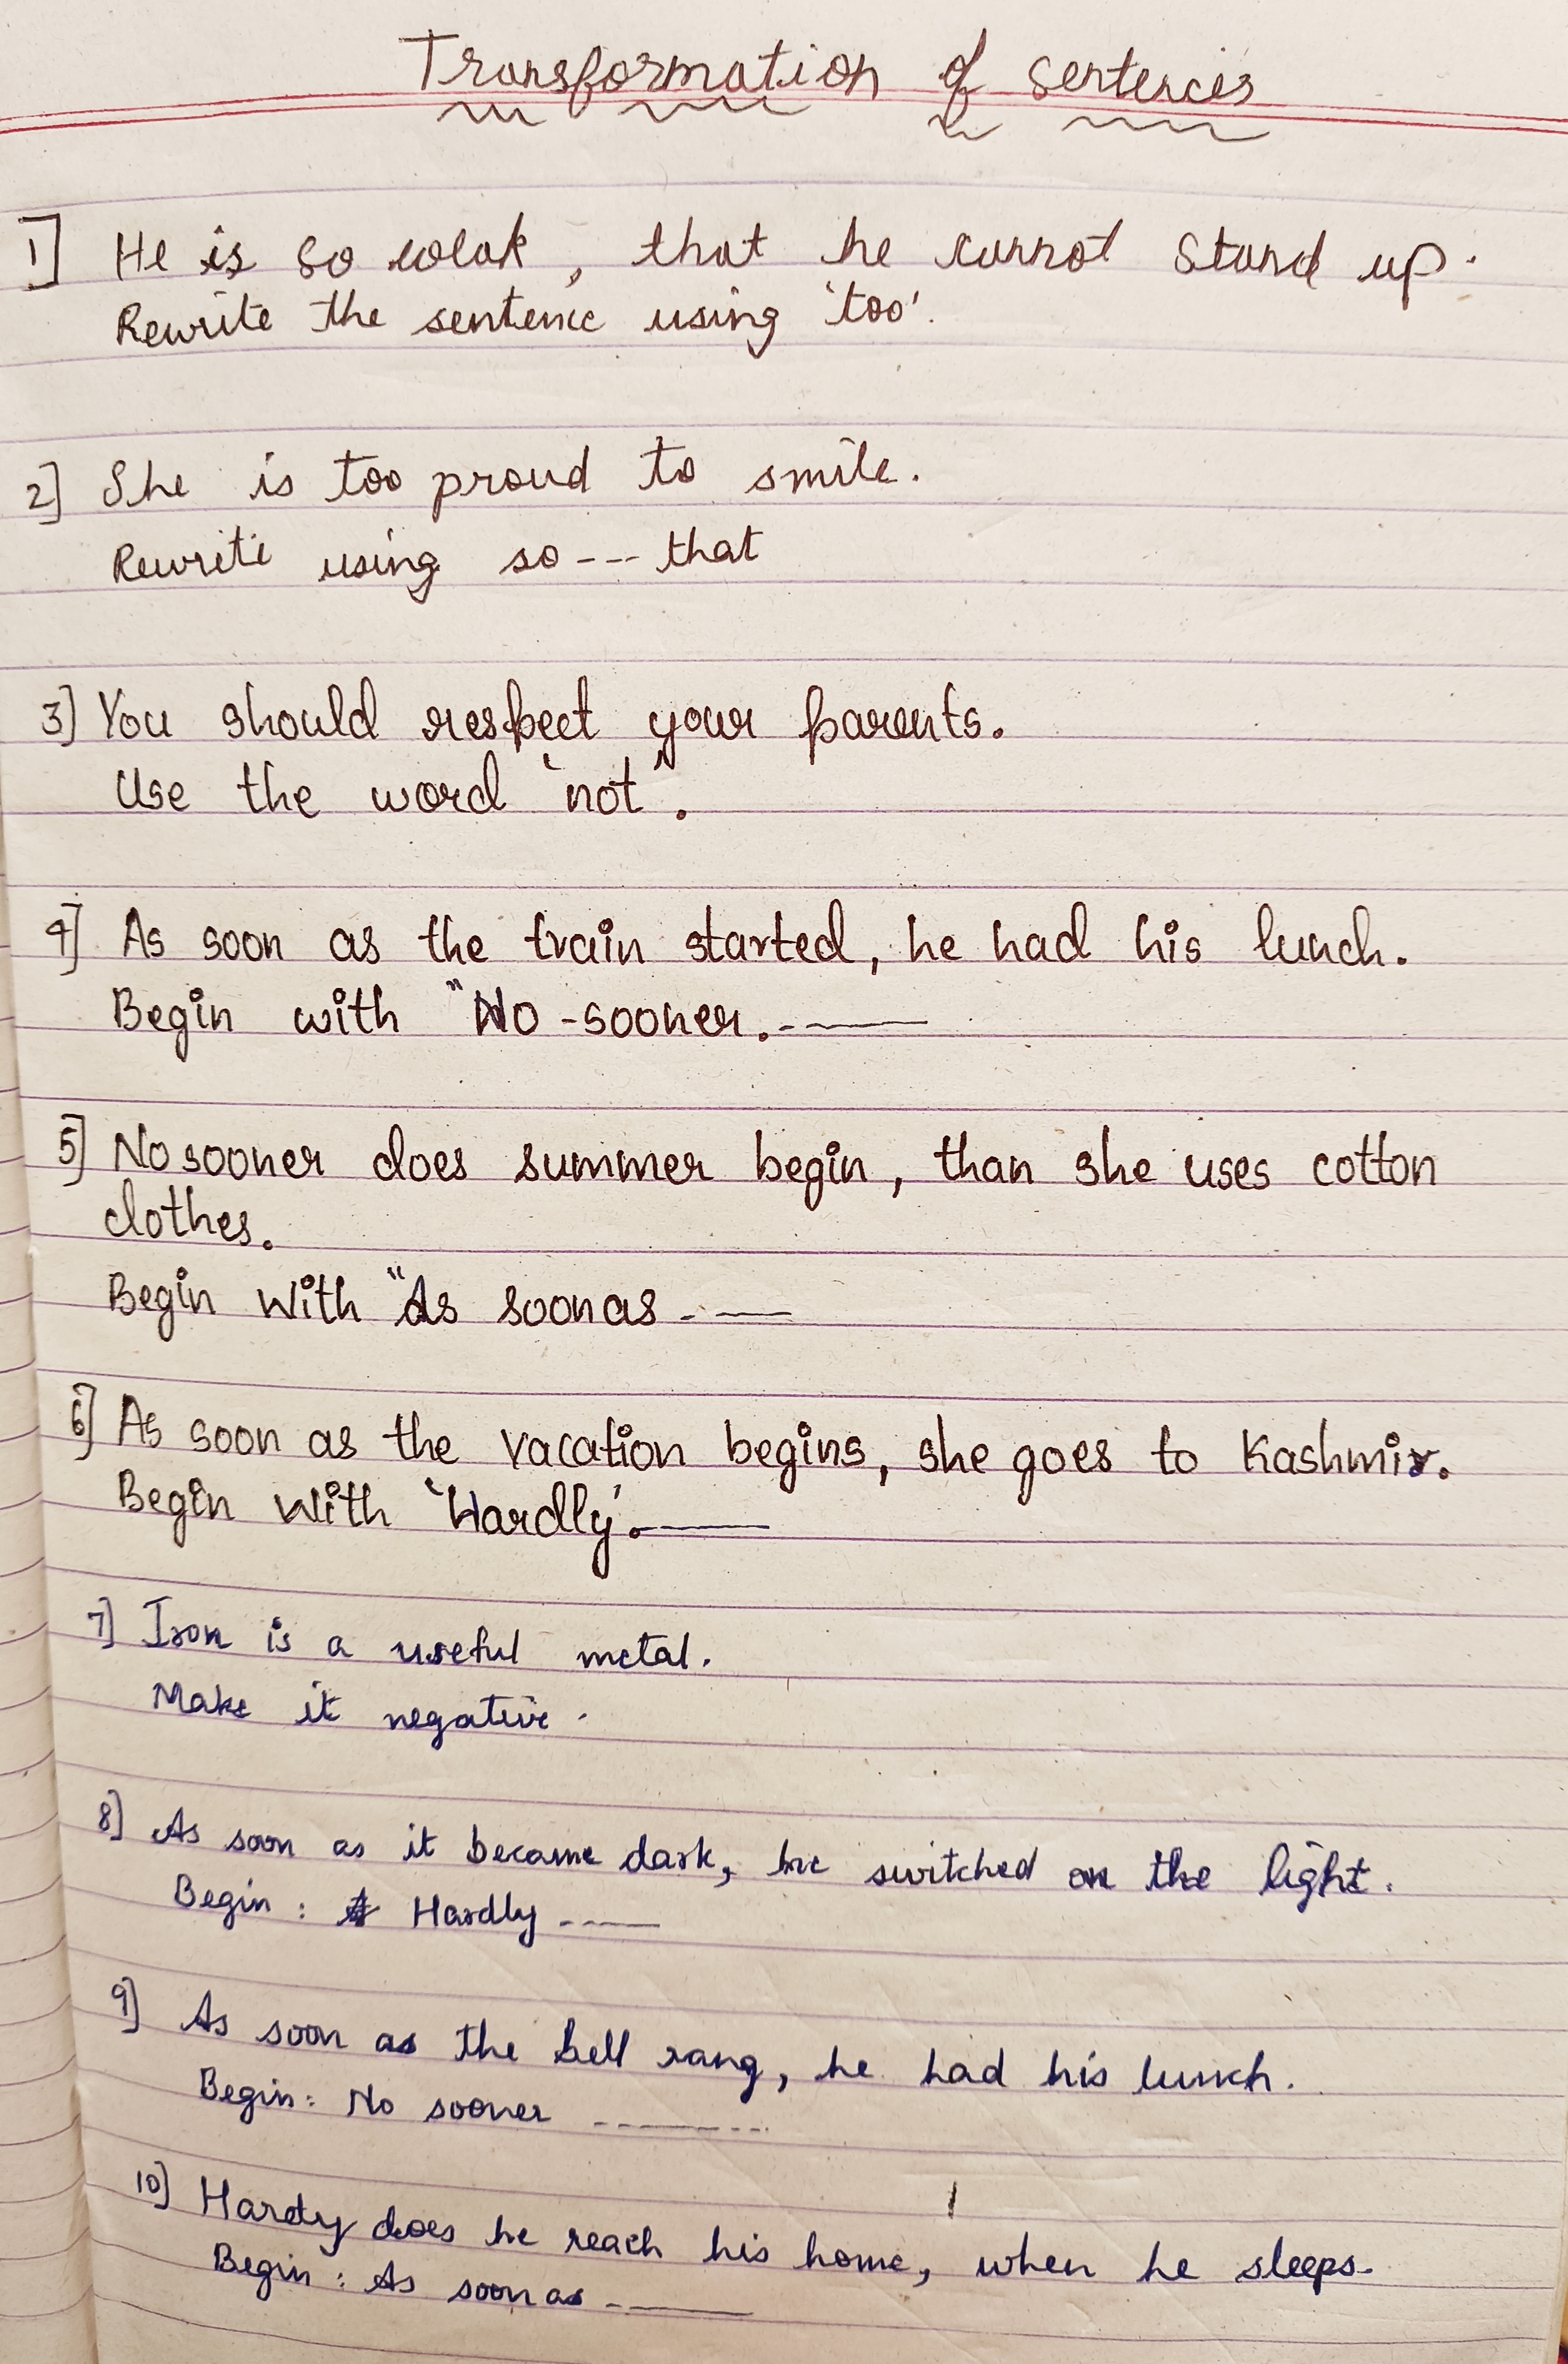 Transformation of sentences
1] He is so weak, that he cannot stand up.
Rewrite the sentence using 'too'.
2] She is too proud to smile.
Rewrite using so --- that
3] You should respect your parents.
Use the word 'not'.
4] As soon as the train started, he had his lunch.
Begin with "No-sooner.-——
5] No sooner does summer begin, than she uses cotton
clothes.
Begin with "As soon as - —
6] As soon as the vacation begins, she goes to Kashmir.
Begin with 'Hardly'.——
7] Iron is a useful metal.
Make it negative.
8] As soon as it became dark, he switched on the light.
Begin : Hardly ----
9] As soon as the bell rang, he had his lunch.
Begin: No sooner --------
10] Hardly does he reach his home, when he sleeps.
Begin : As soon as -——